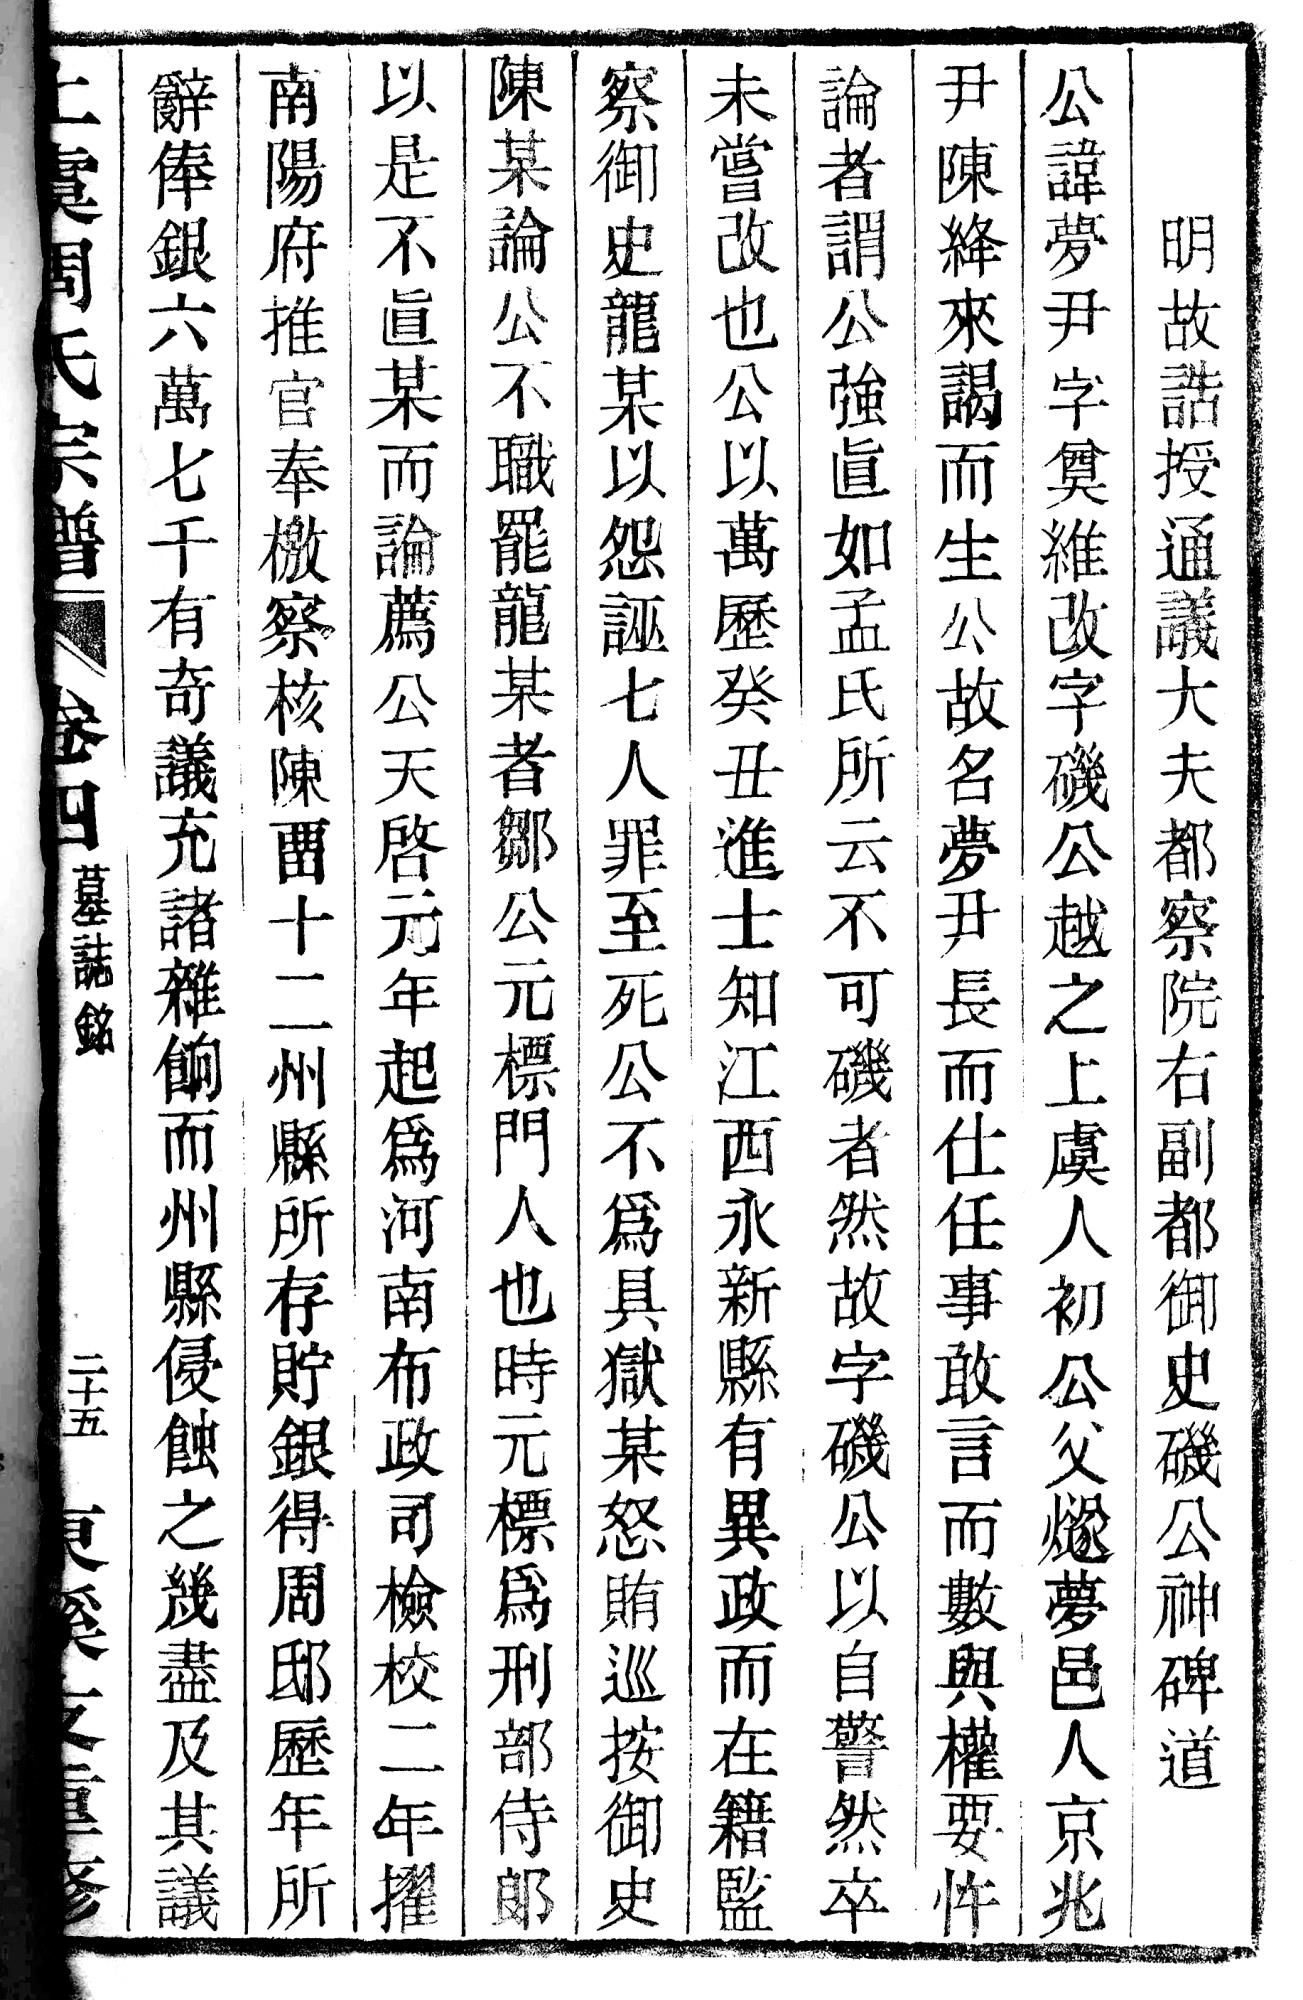 明故誥授通議大夫都察院右副都御史磯公神碑道
公諱夢尹字奠維改字磯公越之上虞人初公父燧夢邑人京兆
尹陳絳來謁而生公故名夢尹長而仕任事敢言而數與權要忤
論者謂公強眞如孟氏所云不可磯者然故字磯公以自警然卒
未嘗改也公以萬歷癸丑進士知江西永新縣有異政而在籍監
察御史龍某以怨誣七人罪至死公不爲具獄某怒賄巡按御史
陳某論公不職罷龍某者鄒公元標門人也時元標爲刑部侍郎
以是不直某而論薦公天啓元年起爲河南布政司檢校二年擢
南陽府推官奉檄察核陳畱十二州縣所存貯銀得周邸歷年所
辭俸銀六萬七千有奇議充諸雜餉而州縣侵蝕之幾盡及其議
上虞周氏宗譜 卷四 墓誌銘 二十五 東溪支重修